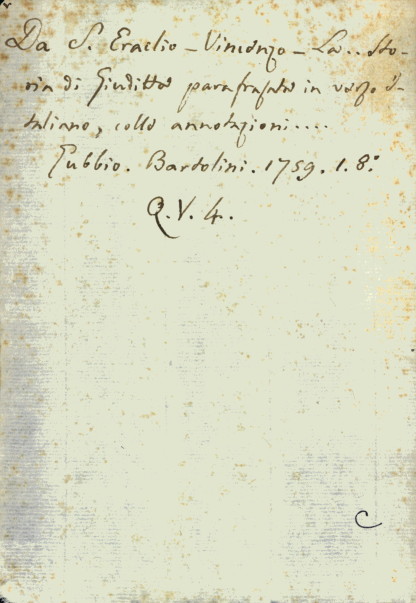 Da S. Eraclio – Vincenzo – La.. Sto-
ria di Giuditta parafrasata in verso i-
taliano, colle annotazioni....
Gubbio. Bartolini. 1759. 1. 8.°
Q. V. 4.
C